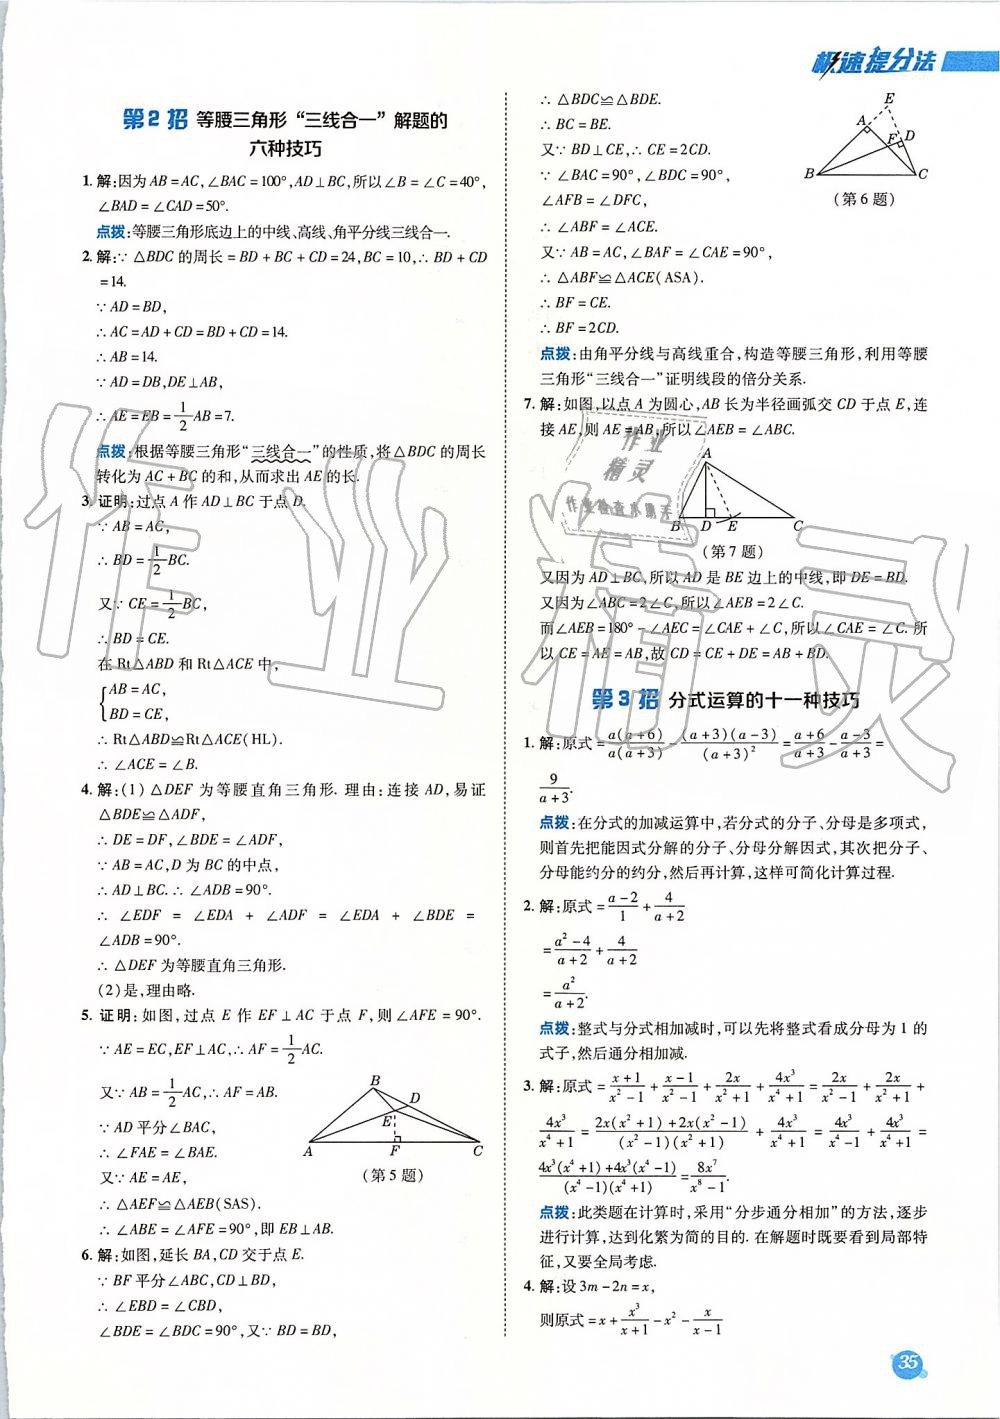 极速提分法
第2招 等腰三角形“三线合一”解题的
六种技巧
1. 解:因为AB=AC,∠BAC=100°,AD⊥BC,所以∠B=∠C=40°,
∠BAD=∠CAD=50°.
点拨:等腰三角形底边上的中线、高线、角平分线三线合一.
2. 解:∵△BDC的周长=BD+BC+CD=24,BC=10,∴BD+CD
=14.
∵AD=BD,
∴AC=AD+CD=BD+CD=14.
∴AB=14.
∵AD=DB,DE⊥AB,
∴AE=EB=1/2AB=7.
点拨:根据等腰三角形“三线合一”的性质,将△BDC的周长
转化为AC+BC的和,从而求出AE的长.
3. 证明:过点A作AD⊥BC于点D.
∵AB=AC,
∴BD=1/2BC.
又∵CE=1/2BC,
∴BD=CE.
在Rt△ABD和Rt△ACE中,
{AB=AC,
BD=CE,
∴Rt△ABD≌Rt△ACE(HL).
∴∠ACE=∠B.
4. 解:(1)△DEF为等腰直角三角形.理由:连接AD,易证
△BDE≌△ADF,
∴DE=DF,∠BDE=∠ADF,
∵AB=AC,D为BC的中点,
∴AD⊥BC.∴∠ADB=90°.
∴∠EDF=∠EDA+∠ADF=∠EDA+∠BDE=
∠ADB=90°.
∴△DEF为等腰直角三角形.
(2)是,理由略.
5. 证明:如图,过点E作EF⊥AC于点F,则∠AFE=90°.
∵AE=EC,EF⊥AC,∴AF=1/2AC.
又∵AB=1/2AC,∴AF=AB.
∵AD平分∠BAC,
∴∠FAE=∠BAE.
又∵AE=AE,
∴△AEF≌△AEB(SAS).
∴∠ABE=∠AFE=90°,即EB⊥AB.
B
D
E
A
F
C
(第5题)
6. 解:如图,延长BA,CD交于点E.
∵BF平分∠ABC,CD⊥BD,
∴∠EBD=∠CBD,
∠BDE=∠BDC=90°,又∵BD=BD,
∴△BDC≌△BDE.
∴BC=BE.
又∵BD⊥CE,∴CE=2CD.
∵∠BAC=90°,∠BDC=90°,
∠AFB=∠DFC,
∴∠ABF=∠ACE.
又∵AB=AC,∠BAF=∠CAE=90°,
∴△ABF≌△ACE(ASA).
∴BF=CE.
∴BF=2CD.
E
A
F
D
B
C
(第6题)
点拨:由角平分线与高线重合,构造等腰三角形,利用等腰
三角形“三线合一”证明线段的倍分关系.
7. 解:如图,以点A为圆心,AB长为半径画弧交CD于点E,连
接AE,则AE=AB,所以∠AEB=∠ABC.
A
B
D
E
C
(第7题)
又因为AD⊥BC,所以AD是BE边上的中线,即DE=BD.
又因为∠ABC=2∠C,所以∠AEB=2∠C.
而∠AEB=180°-∠AEC=∠CAE+∠C,所以∠CAE=∠C.所
以CE=AE=AB,故CD=CE+DE=AB+BD.
第3招 分式运算的十一种技巧
1. 解:原式=a(a+6)/a(a+3)-(a+3)(a-3)/(a+3)²=(a+6)/(a+3)-(a-3)/(a+3)=
9/(a+3).
点拨:在分式的加减运算中,若分式的分子、分母是多项式,
则首先把能因式分解的分子、分母分解因式,其次把分子、
分母能约分的约分,然后再计算,这样可简化计算过程.
2. 解:原式=(a-2)/1+4/(a+2)
=(a²-4)/(a+2)+4/(a+2)
=a²/(a+2).
点拨:整式与分式相加减时,可以先将整式看成分母为1的
式子,然后通分相加减.
3. 解:原式=(x+1)/(x²-1)+(x-1)/(x²-1)+2x/(x²+1)+4x³/(x⁴+1)=2x/(x²-1)+2x/(x²+1)+
4x³/(x⁴+1)=(2x(x²+1)+2x(x²-1))/((x²-1)(x²+1))+4x³/(x⁴+1)=4x³/(x⁴-1)+4x³/(x⁴+1)=
(4x³(x⁴+1)+4x³(x⁴-1))/((x⁴-1)(x⁴+1))=8x⁷/(x⁸-1).
点拨:此类题在计算时,采用“分步通分相加”的方法,逐步
进行计算,达到化繁为简的目的.在解题时既要看到局部特
征,又要全局考虑.
4. 解:设3m-2n=x,
则原式=x+x³/(x+1)-x²-x/(x-1)
35
作业精灵
作业
精灵
作业检查小助手